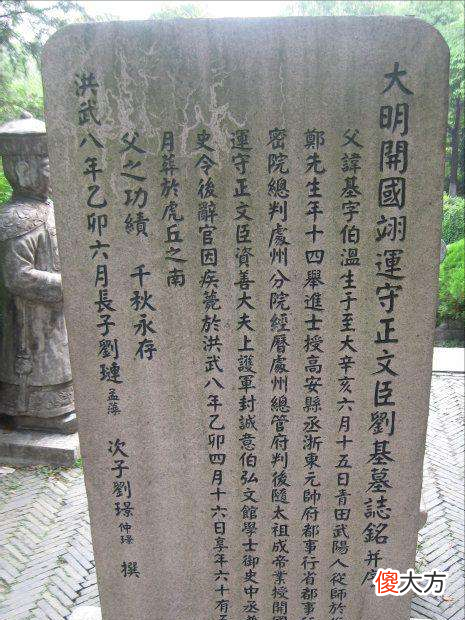 大明開國翊運守正文臣劉基墓誌銘并序
父諱基字伯溫生于至大辛亥六月十五日青田武陽人從師於
鄭先生年十四舉進士授高安縣丞浙東元帥府都事行省都事
密院總判處州分院經曆處州總管府判後隨太祖成帝業授開國
運守正文臣資善大夫上護軍封誠意伯弘文館學士御史中丞兼
史令後辭官因疾薨於洪武八年乙卯四月十六日享年六十有五
月葬於虎丘之南
父之功績 千秋永存
洪武八年乙卯六月長子劉璉孟藻 次子劉璟仲璟 撰
傻大方